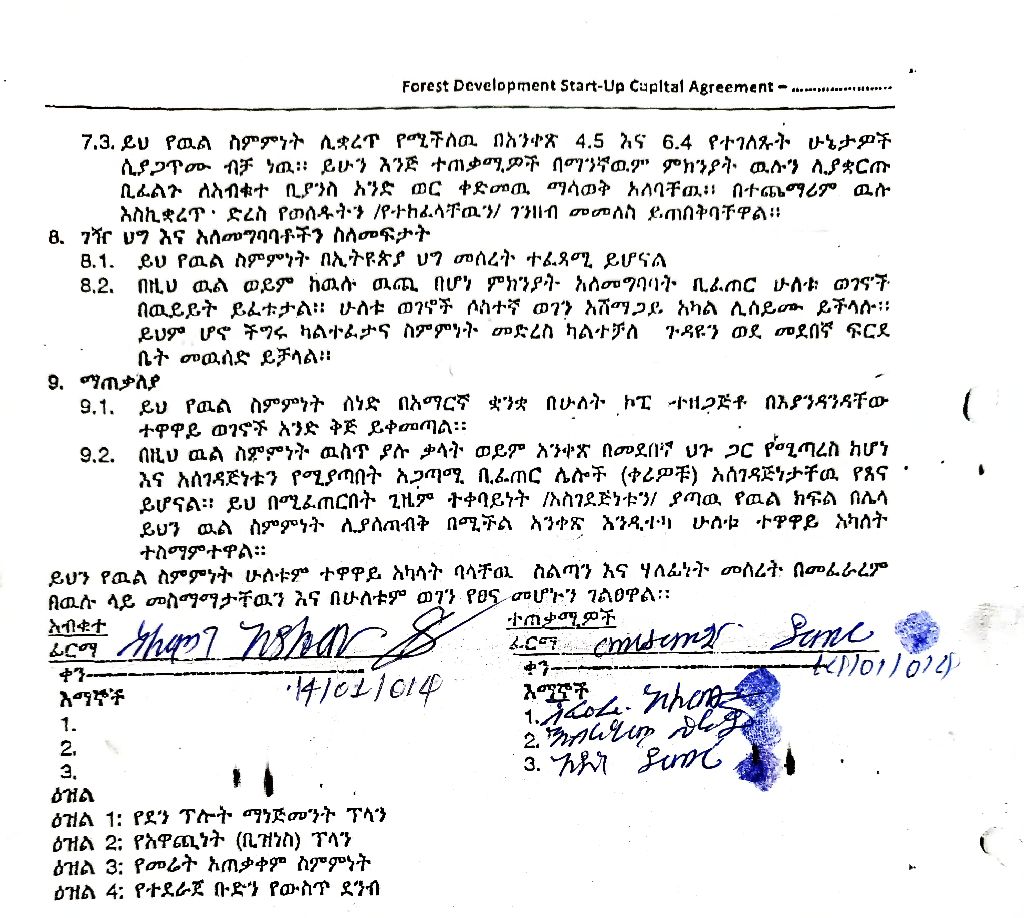 Forest Development Start-Up Capital Agreement – ........................
7.3. ይህ የዉል ስምምነት ሊቋረጥ የሚችለዉ በአንቀጽ 4.5 እና 6.4 የተገለጹት ሁኔታዎች
ሲያጋጥሙ ብቻ ነዉ፡፡ ይሁን እንጅ ተጠቃሚዎች በማንኛዉም ምክንያት ዉሉን ሊያቋርጡ
ቢፈልጉ ለአብቁተ ቢያንስ አንድ ወር ቀድመዉ ማሳወቅ አለባቸዉ፡፡ በተጨማሪም ዉሉ
እስኪቋረጥ ድረስ የወሰዱትን /የተከፈላቸዉን/ ገንዘብ መመለስ ይጠበቅባቸዋል፡፡
8. ገዥ ህግ እና አለመግባባቶችን ስለመፍታት
8.1. ይህ የዉል ስምምነት በኢትዩጵያ ህግ መሰረት ተፈጻሚ ይሆናል
8.2. በዚህ ዉል ወይም ከዉሉ ዉጪ በሆነ ምክንያት አለመግባባት ቢፈጠር ሁለቱ ወገኖች
በዉይይት ይፈቱታል፡፡ ሁለቱ ወገኖች ሶስተኛ ወገን አሸማጋይ አካል ሊሰይሙ ይችላሉ፡፡
ይህም ሆኖ ችግሩ ካልተፈታና ስምምነት መድረስ ካልተቻለ ጉዳዩን ወደ መደበኛ ፍርደ
ቤት መዉሰድ ይቻላል፡፡
9. ማጠቃለያ
9.1. ይህ የዉል ስምምነት ሰነድ በአማርኛ ቋንቋ በሁለት ኮፒ ተዘጋጅቶ በእያንዳንዳቸው
ተዋዋይ ወገኖች አንድ ቅጅ ይቀመጣል፡፡
9.2. በዚህ ዉል ስምምነት ዉስጥ ያሉ ቃላት ወይም አንቀጽ በመደበኛ ህጉ ጋር የሚጣረስ ከሆነ
እና አስገዳጅነቱን የሚያጣበት አጋጣሚ ቢፈጠር ሌሎች (ቀሪዎቹ) አስገዳጅነታቸዉ የጸና
ይሆናል፡፡ ይህ በሚፈጠርበት ጊዜም ተቀባይነት /አስገደጅነቱን/ ያጣዉ የዉል ክፍል በሌላ
ይህን ዉል ስምምነት ሊያስጠብቅ በሚችል አንቀጽ እንዲተካ ሁለቱ ተዋዋይ አካለት
ተስማምተዋል፡፡
ይህን የዉል ስምምነት ሁለቱም ተዋዋይ አካላት ባላቸዉ ስልጣን እና ሃለፊነት መሰረት በመፈራረም
በዉሉ ላይ መስማማታቸዉን እና በሁለቱም ወገን የፀና መሆኑን ገልፀዋል፡፡
አብቁተ
ፊርማ
ቀን
14/01/014
እማኞች
1.
2.
3.
ተጠቃሚዎች
ፊርማ
ቀን 14/01/014
እማኞች
1.
2.
3.
ዕዝል
ዕዝል 1: የደን ፕሎት ማነጅመንት ፕላን
ዕዝል 2: የአዋጪነት (ቢዝነስ) ፕላን
ዕዝል 3: የመሬት አጠቃቀም ስምምነት
ዕዝል 4: የተደራጀ ቡድን የውስጥ ደንብ